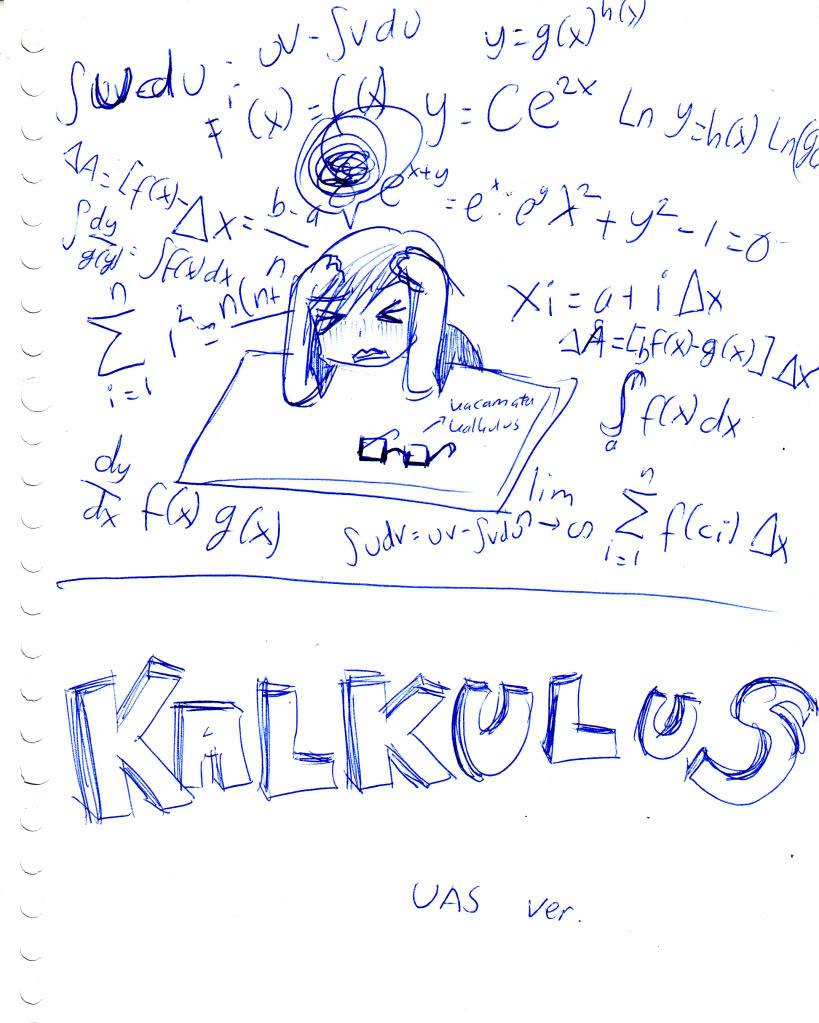 ∫udv: uv - ∫vdu
y=g(x)^h(x)
y = Ce^2x
Ln y=h(x) Ln(g
ΔA=[f(x)-
Δx = b-a
n
e^x+y = e^x · e^y
x^2 + y^2 - 1 = 0
∫ dy/g(y) = ∫f(x)dx
n Σ i=1 i^2 = n(n+
xi = a + i Δx
ΔA = [f(x)-g(x)] Δx
kacamata
kalkulus
∫ a f(x) dx
dy/dx f(x) g(x)
∫udv=uv-∫vdu
lim n→∞ n Σ i=1 f(ci) Δx
KALKULUS
UAS ver.